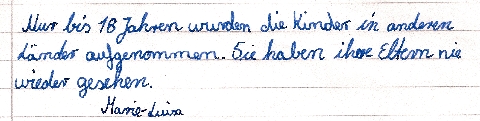 Nur bis 18 Jahren wurden die Kinder in anderen
Länder aufgenommen. Sie haben ihre Eltern nie
wieder gesehen.
Marie-Luisa